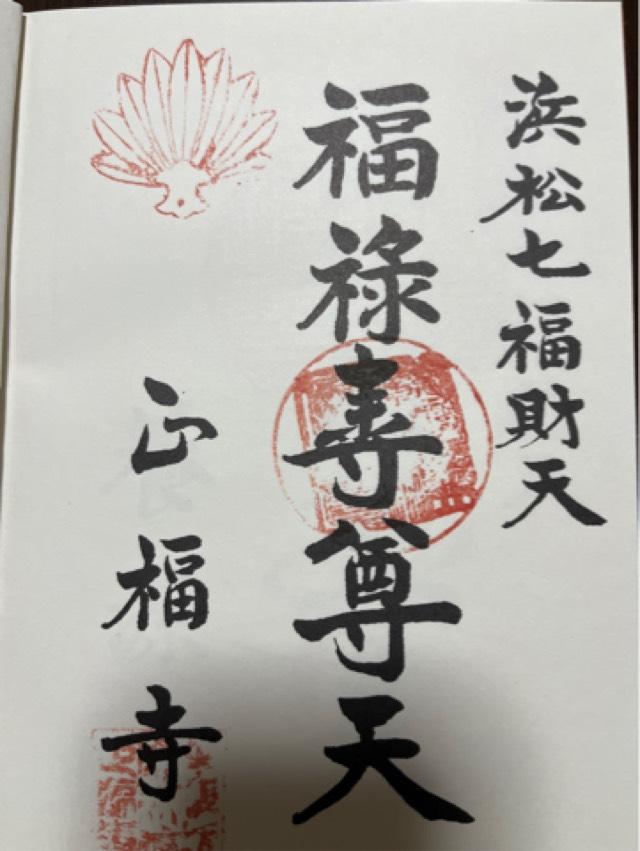 浜松七福財天
福禄寿尊天
正福寺